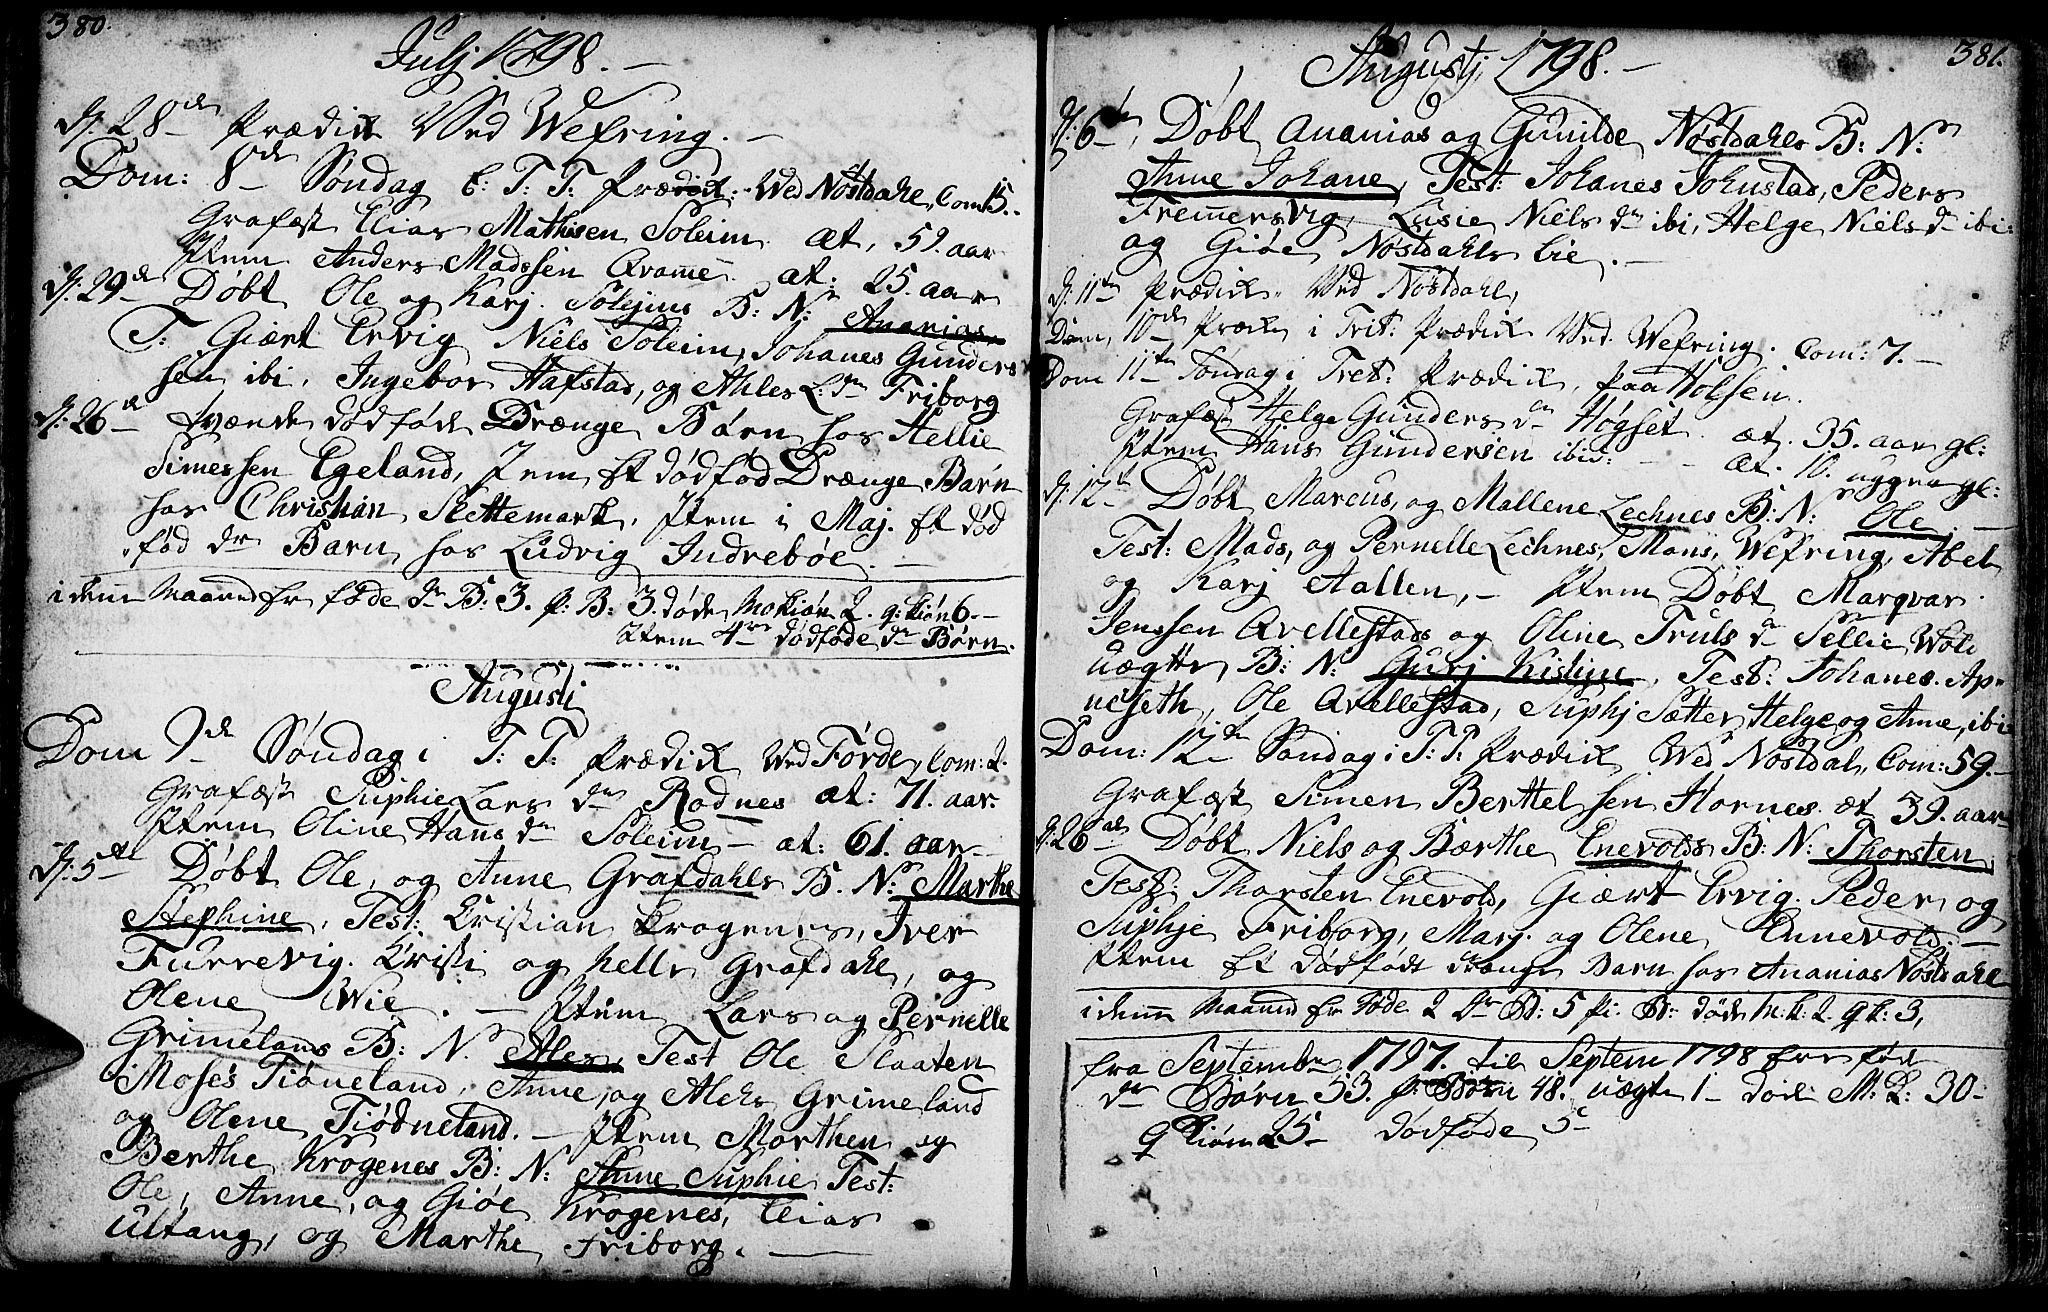 380.
Julj 1798. –
D. 28de Prædik Ved Wefring. –
Dom: 8de Søndag e: T: T. Prædik: Wed Nøstdahl, Com 15.
Grafæst Elias Mathisen Soleim æt, 59. aar
Item Anders Madssen Qvamme æt: 25. aar
D. 29de Døbt Ole og Karj Solejms B: N: Ananias
T: Giært Ervig Niels Soleim, Johanes Gunders
sen ibi, Ingebor Hafstad, og Ahles L: dn Friborg
D. 26de tvænde dødføde Drænge Børn hos Hellie
Simessen Egeland, Item Et dødfød Drænge Barn
hos Christian Slettemark, Item i Maj. Et død
fød dr Barn hos Ludvig Indrebøe. –
i denne Maaned er føde dr B: 3. p: B: 3. døde Mokiøn 2. q: kiøn 6. –
Item 4re dødføde dr Børn.
Augusti
Dom 9de Søndag i T: T: Prædik Ved Førde, Com: 2.
Grafæst Suphie Lars dn Rodnes æt: 71. aar.
Item Oline Hans dn Soleim – æt: 61. aar –
D. 5te Døbt Ole, og Anne Grafdahls B. N: Marthe
Stephine, Test: Kristian Krogenes, Iver
Furrevig. Kristi og Pelle Grafdahl, og
Olene Wie. – Item Lars og Pernelle
Grimelans B: N: Alex, Test Ole Slaaten
Moses Tiøneland, Anne, og Aleks Grimeland
og Olene Tiødneland. – Item Morthen og
Berthe Krogenes B: N: Anne Suphie Test:
Ole, Anne, og Giøe Krogenes, Elias
Ultang, og Marthe Friborg. –
Augustj 1798. –
381.
D: 6te, Døbt Ananias og Gunilde Nøstdahls B: N:
Anne Johane, Test: Johanes Johnstad, Peders
Fremmersvig, Lusie Niels dn ibi, Helge Niels dn ibi:
og Giøe Nøstdahls lie. –
D: 11te Prædik Ved Nøstdahl,
Dom, 10de Præk i Trit: Prædik Ved Wefring. Com: 7. –
Dom 11te Søndag i Tret: Prædik, paa Holsen.
Grafæst Helge Gunders dn Høgset. æt. 35. aar gl:
Item Hans Gundersen ibid: – – æt. 10. uggen gl:
D. 12te Døbt Marcus, og Mallene Lechnes B: N: Ole. –
Test: Mads, og Pernelle Lechnes, Mons, Wefring, Abel
og Karj Aallen, – Item Døbt Marqvar
Jenssen Qvellestads og Oline Truls dn Sellie Wold
uægte B: N: Gurj Kistine, Test: Johanes. Ap-
nelseth, Ole Qvellestad, Suphj Sætter, Helge og Anne, ibi
Dom: 12te Søndag i T: T: Prædik Wed Nøstdal, Com: 59. –
Grafæst Simen Berthel sen Hornes. æt 39. aar
D. 26de Døbt Niels og Bærthe Enevolds B: N: Thorsten,
Test: Thorsten Enevold, Giært Ervig. Peder, og
Suphje Friborg, Marj. og Olene Ennevold. –
Item Et dødfødt drænge Barn hos Ananias Nøstdahl
i denne Maaned er Føde 2 dr B: 5 pi: B: døde M: k: 2. q k: 3,
fra Septembr 1797. til Septem 1798 ere fød
dr Børn 53. p: Børn 48. uægte 1 – døde M: k: 30 –
q kiøn 25 – dødføde 5